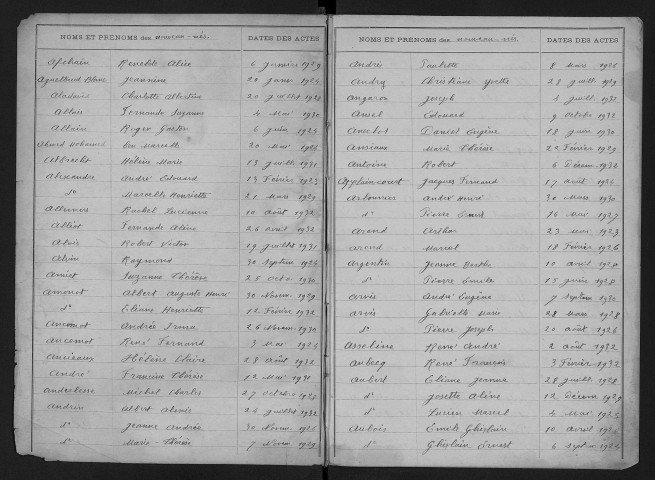 NOMS ET PRÉNOMS des nouveau-nés. DATES DES ACTES
Renelde Alice 6 Janvier 1929
Jeannine 20 Janvier 1925
Charlotte Albertine 20 juillet 1928
Allais Fernande Suzanne 4 Mai 1930
Allain Roger Gaston 6 juin 1925
Ben Marcelle 20 Mai 1926
Albrecht Hélène Marie 13 juillet 1931
Alexandre André Edouard 13 Février 1923
d° Marcelle Henriette 21 Mars 1929
Rachel Lucienne 10 Août 1932
Alliot Fernande Aline 26 Avril 1932
Alois Robert Victor 19 juillet 1931
Raymond 30 Septem 1926
Amiot Suzanne Thérèse 25 Octo 1930
Amonot Albert Auguste Henri 30 Novem. 1929
d° Eliane Henriette 12 Février 1932
Ancemot Andrée Irma 26 Novem. 1930
Ancemot René Fernand 9 Mai 1926
Anciaux Hélène Claire 28 Août 1932
André Francine Thérèse 12 Mai 1931
Michel Charles 27 Octobre 1928
Andrin Albert Alexis 24 juillet 1932
d° Jeanne Andrée 30 Novem. 1926
d° Marie-Thérèse 7 Novem. 1929
NOMS ET PRÉNOMS des nouveau-nés. DATES DES ACTES
Andris Paulette 8 Mars 1926
Andry Christiane Yvette 28 juillet 1929
Joseph 4 juillet 1931
Ansel Edouard 9 Octobre 1931
Daniel Eugène 18 juin 1930
Ansiaux Marie Thérèse 22 Février 1929
Antoine Robert 6 Décem. 1932
Applaincourt Jacques Fernand 17 Août 1926
André Henri 30 Mars 1930
d° Pierre Ernest 16 Mai 1927
Arend Arthur 23 Mai 1923
Arend Marcel 18 Février 1926
Argentin Jeanne Berthe 10 Avril 1928
d° Pierre Emile 15 Janvier 1930
Arvis André Eugène 7 Septem 1930
Arvis Gabrielle Marie 28 Mars 1928
d° Pierre Joseph 20 Août 1926
Asseline René André 2 Août 1932
Aubecq René François 3 Février 1932
Aubert Eliane Jeanne 28 juillet 1928
d° Josette Aline 12 Décem 1929
d° Lucien Marcel 4 Mai 1925
Aubois Emile Ghislaine 10 Avril 1926
d° Ghislain Ernest 6 Septem 1924